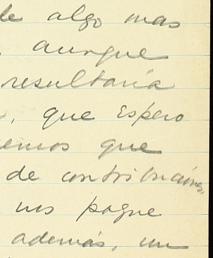 de algo mas
aunque
resultaría
, que espero
emos que
de contribuciones,
nos pague
además, un